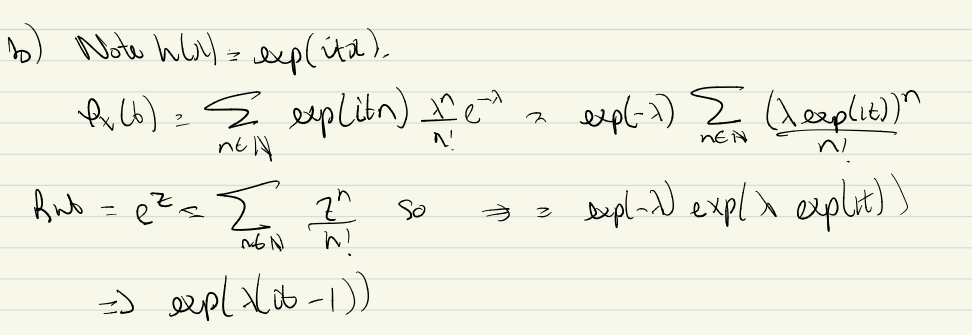 b) Note h(x) = exp(itx).
φ_X(t) = ∑_{n∈ℕ} exp(itn) λ^n/n! e^{-λ} = exp(-λ) ∑_{n∈ℕ} (λ exp(it))^n/n!
But = e^z = ∑_{n∈ℕ} z^n/n! so ⇒ = exp(-λ) exp(λ exp(it))
⇒ exp(λ(it - 1))